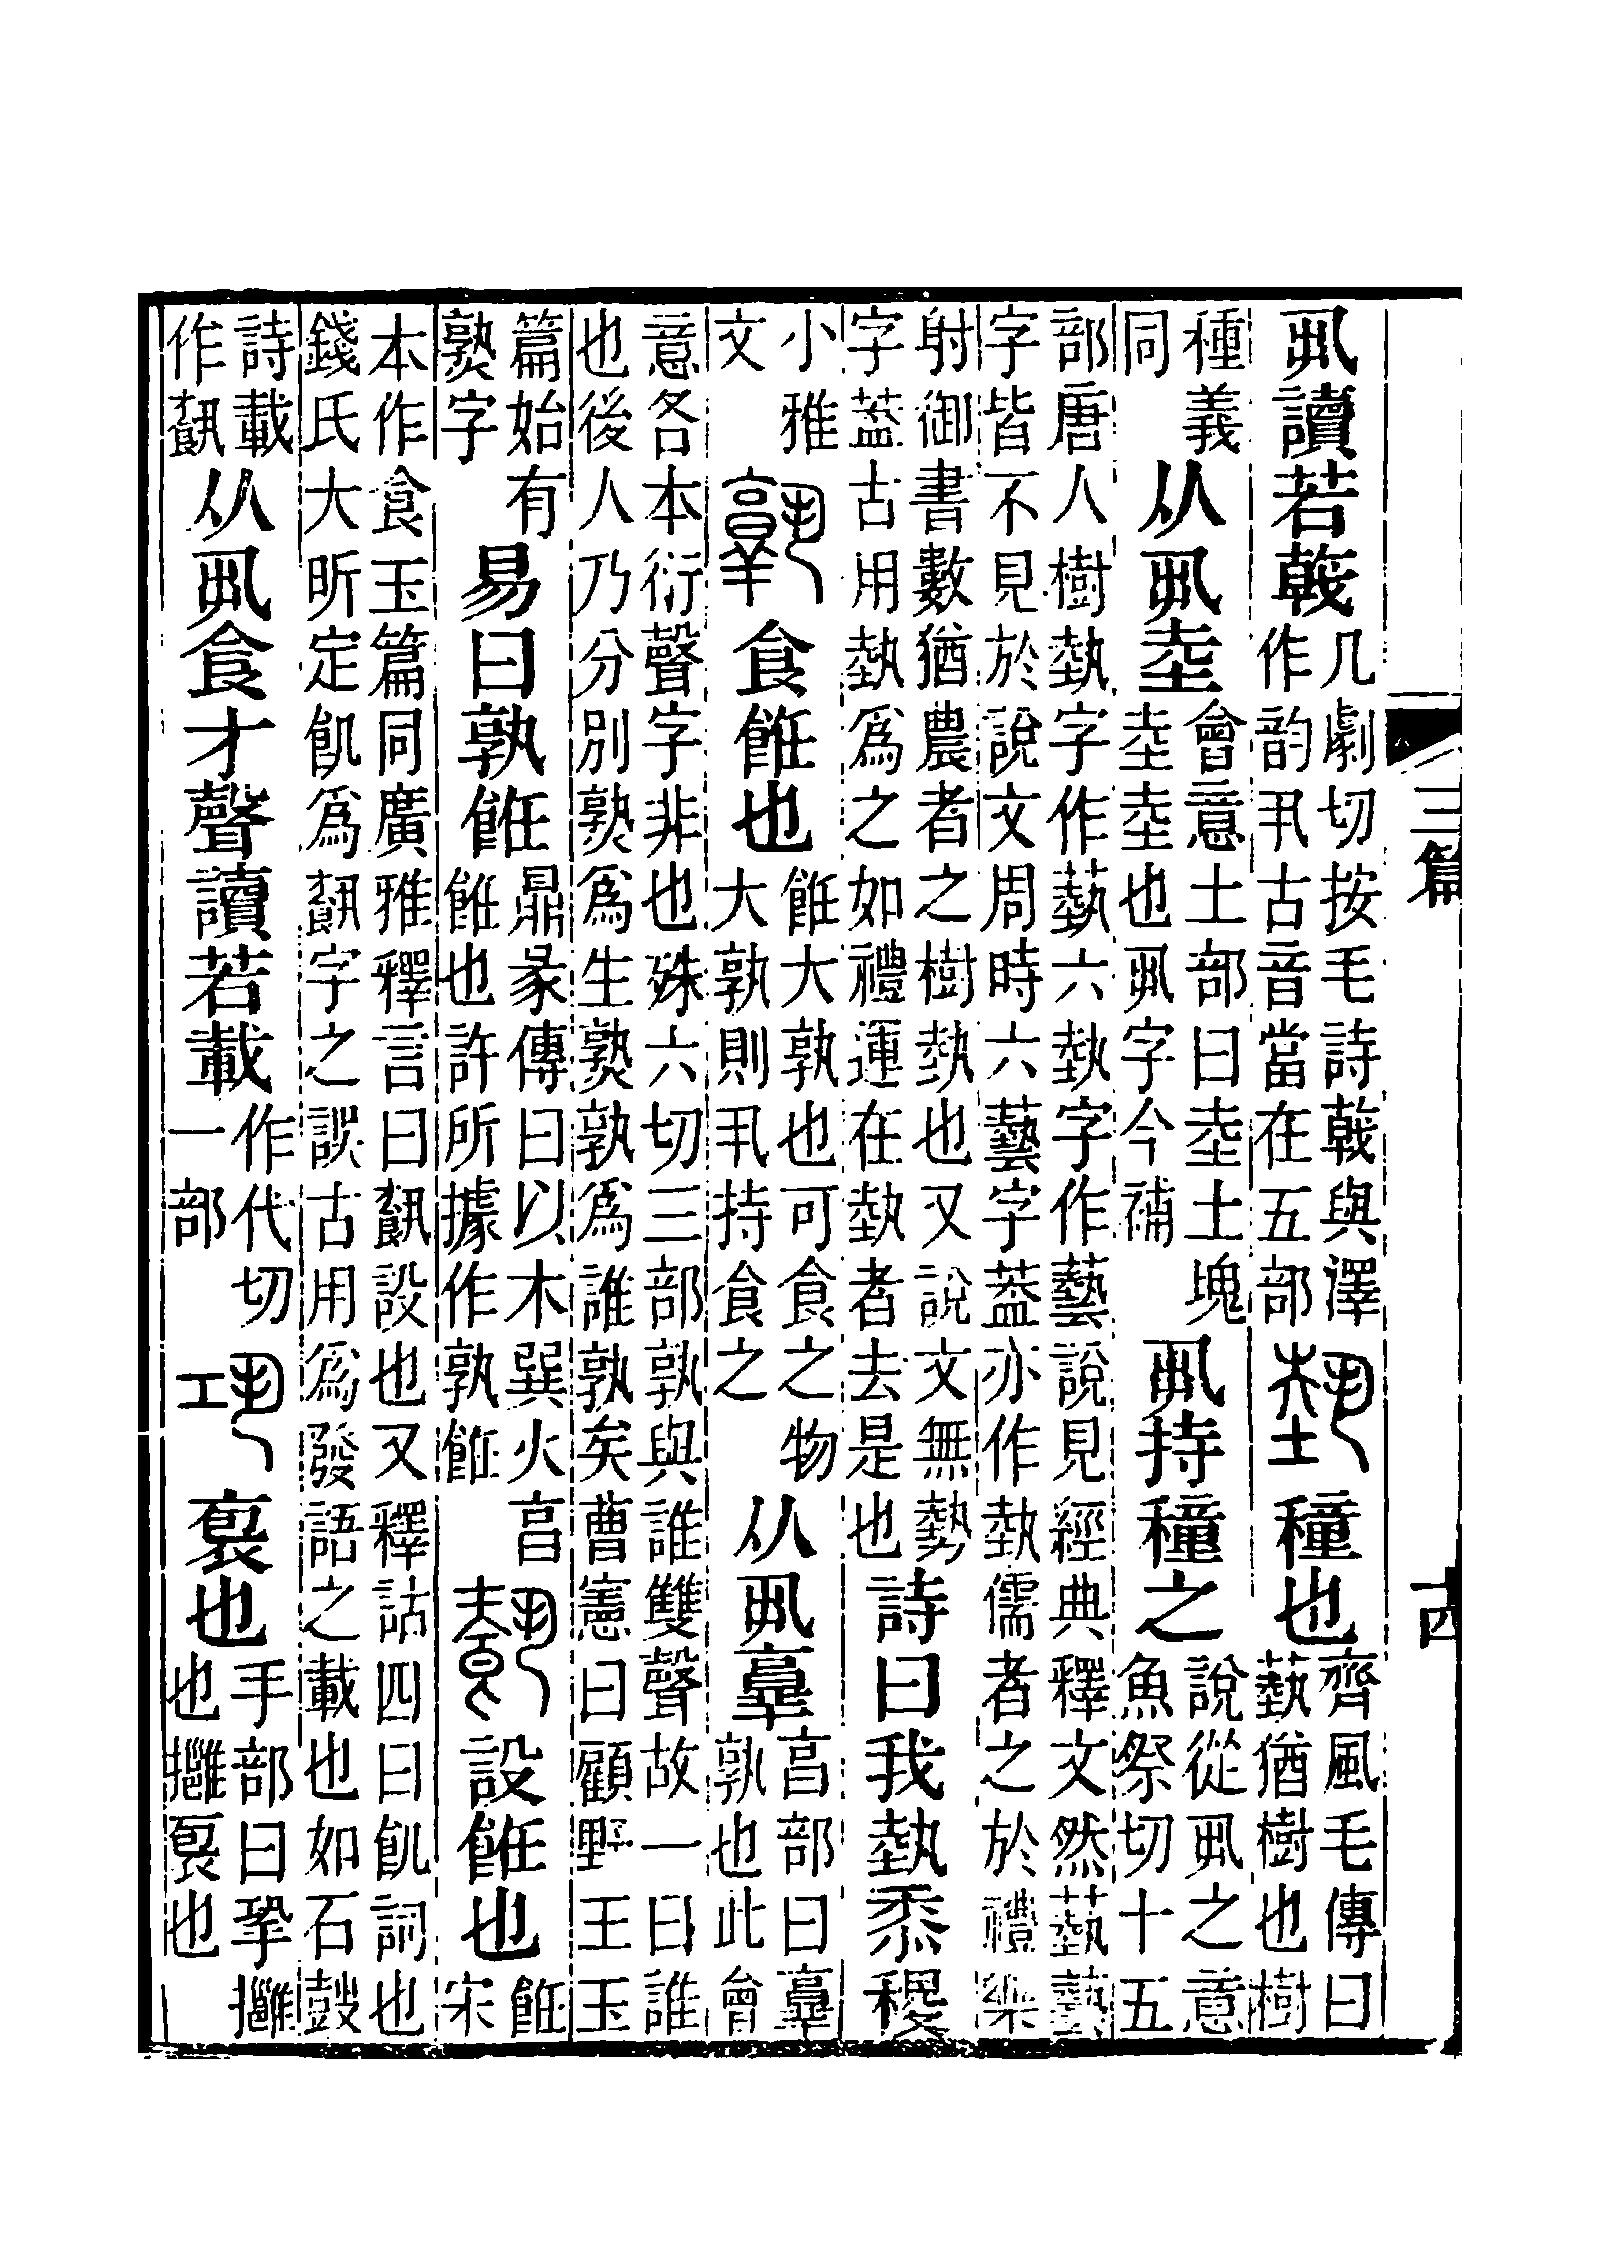 丮讀若㦸
几劇切按毛詩㦸與澤
作韵丮古音當在五部
穜也
齊風毛傳曰
蓺猶樹也樹
種義
同
从丮坴
會意土部曰坴土塊
坴坴也丮字今補
丮持穜之
說從丮之意
魚祭切十五
部唐人樹埶字作蓺六埶字作藝說見經典釋文然蓺藝
字皆不見於說文周時六藝字葢亦作埶儒者之於禮樂
射御書數猶農者之樹埶也又說文無勢
字葢古用埶爲之如禮運在埶者去是也
詩曰我埶黍稷
小雅
文
食飪也
飪大孰也可食之物
大孰則丮持食之
从丮𦎫
亯部曰𦎫
孰也此會
意各本衍聲字非也殊六切三部孰與誰雙聲故一曰誰
也後人乃分別熟爲生熟孰爲誰孰矣曹憲曰顧野王玉
篇始有
熟字
易曰孰飪
鼎彖傳曰以木巽火亯
飪也許所據作孰飪
設飪也
飪宋
本作食玉篇同廣雅釋言曰𩛥設也又釋詁四曰飢詞也
錢氏大昕定飢爲𩛥字之誤古用爲發語之載也如石鼓
詩載
作𩛥
从丮食才聲讀若載
作代切
一部
褱也
手部曰㧬𢹬
也𢹬褱也
三篇
十四